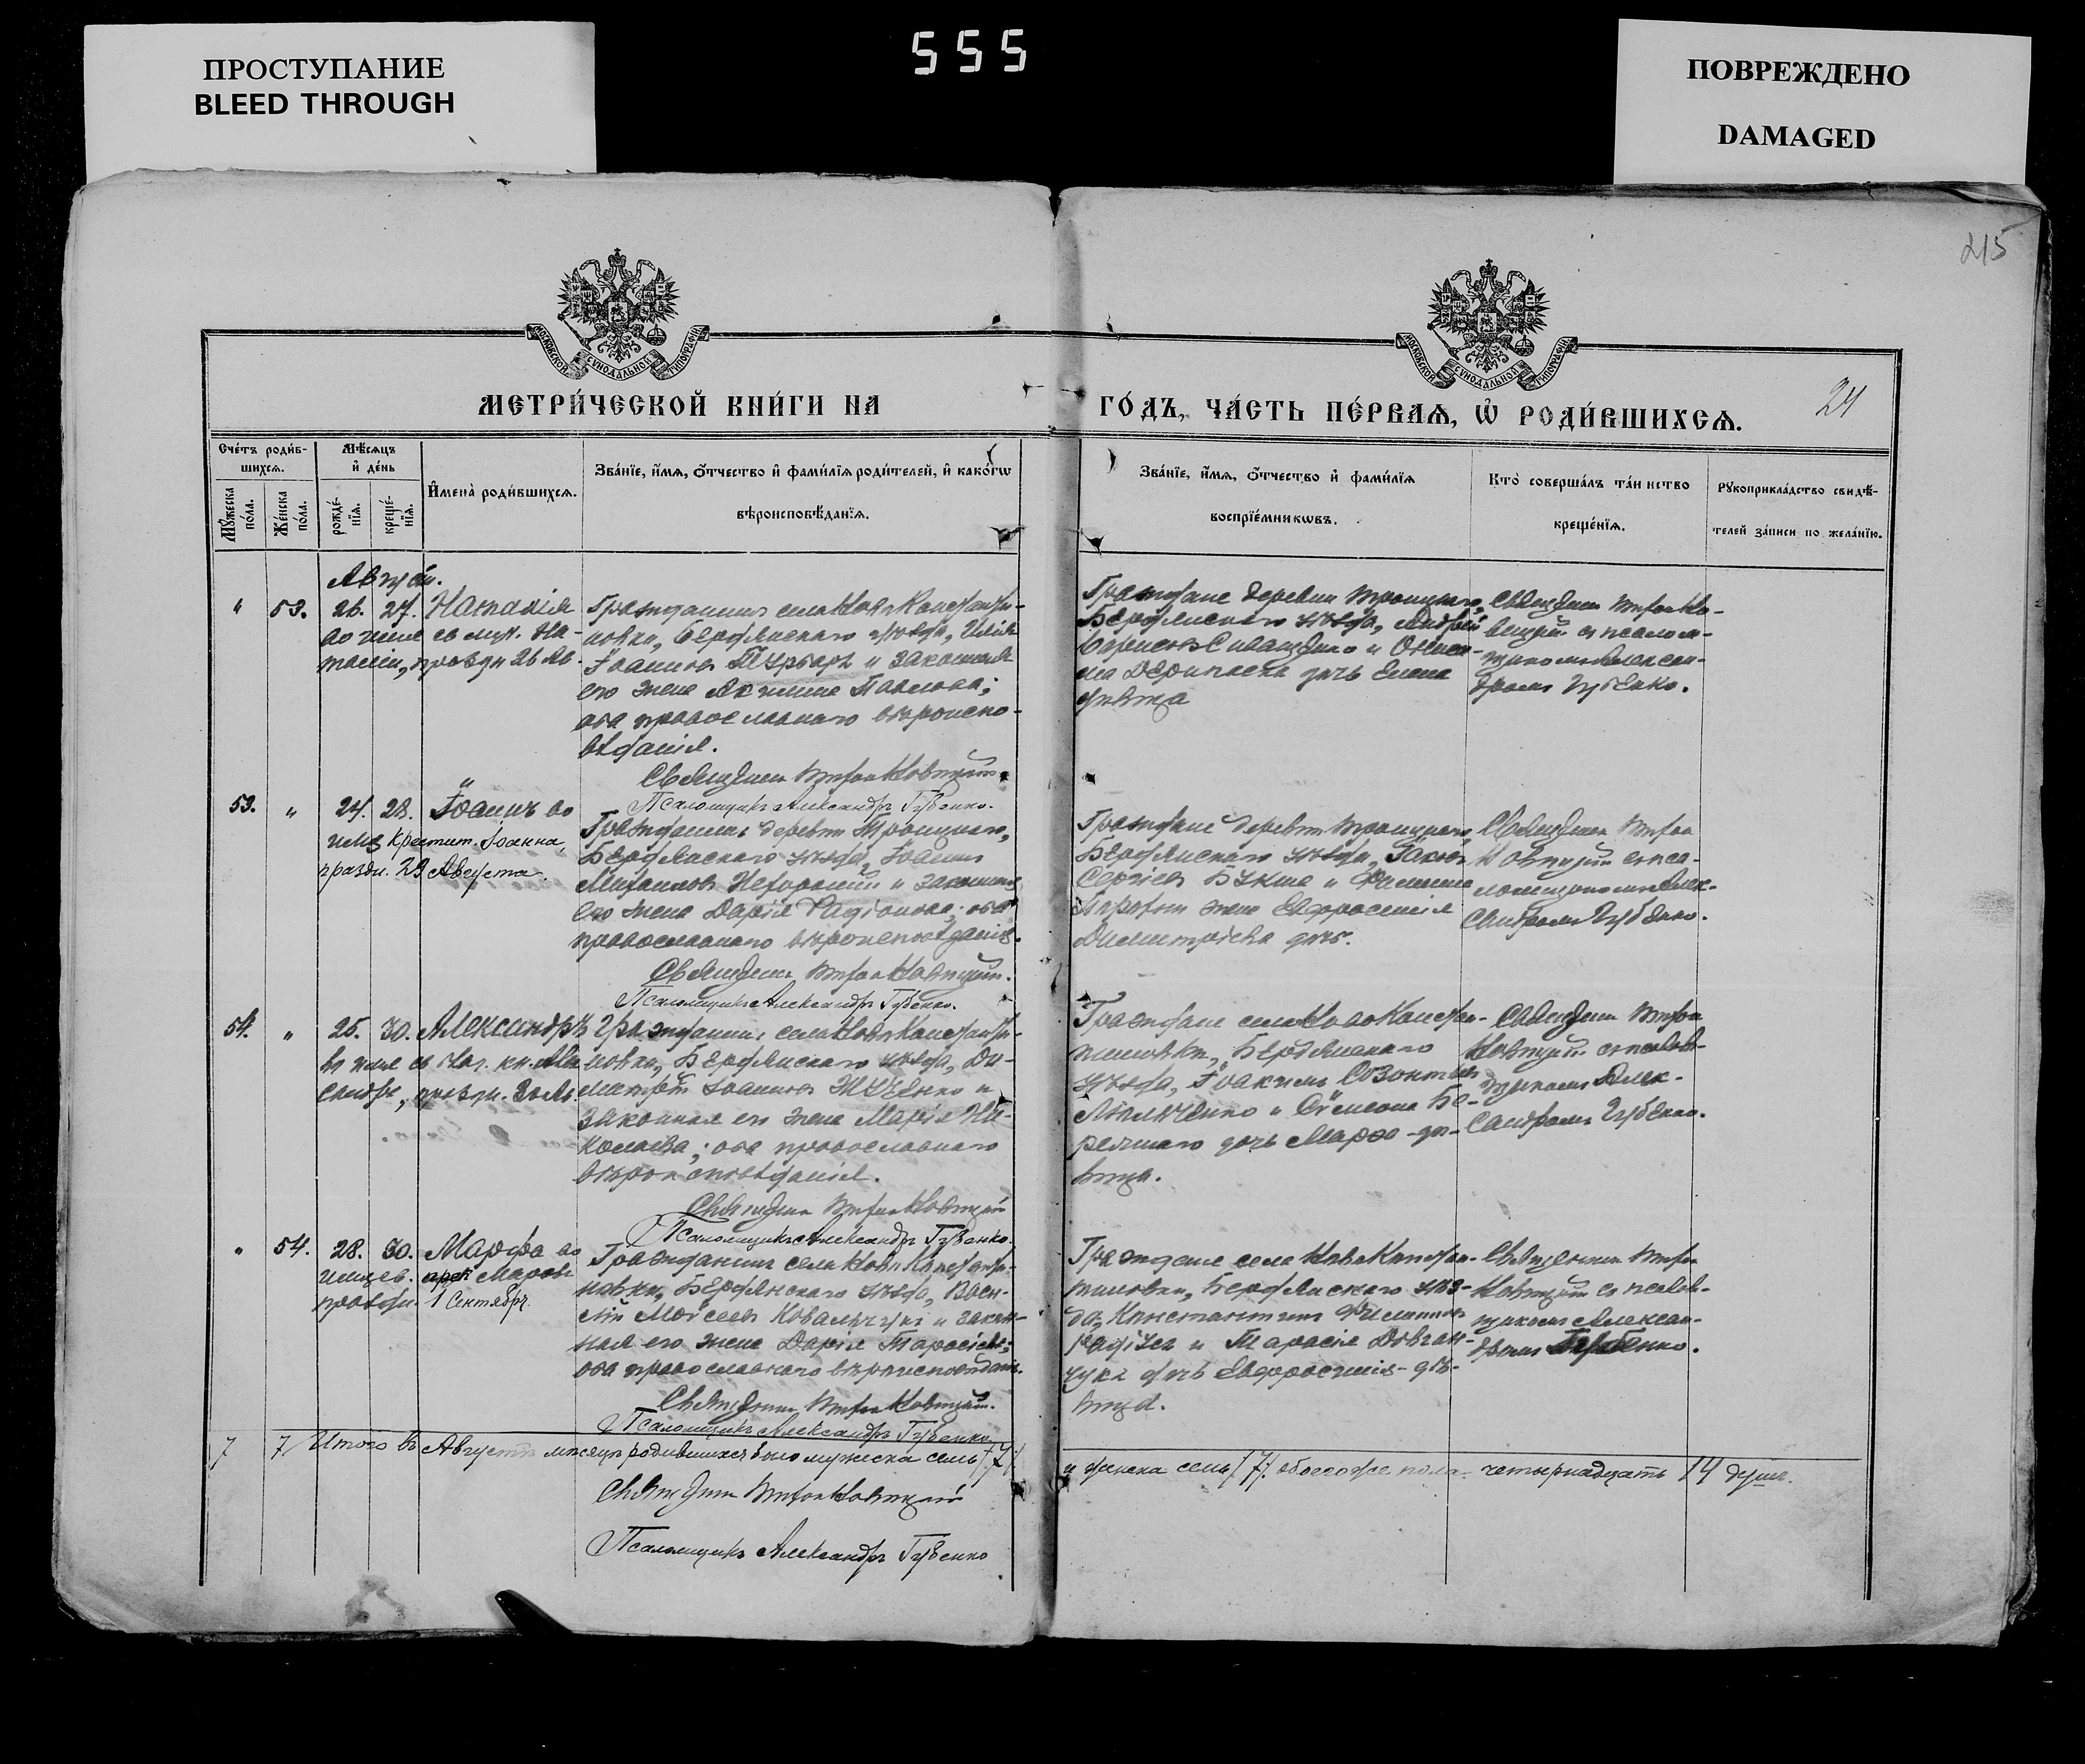 ПРОСТУПАНИЕ
BLEED THROUGH
555
ПОВРЕЖДЕНО
DAMAGED
215
МОСКОВСКОЙ СѴНОДАЛЬНОЙ ТИПОГРАФІИ
МОСКОВСКОЙ СѴНОДАЛЬНОЙ ТИПОГРАФІИ
МЕТРИ́ЧЕСКОЙ КНИ́ГИ НА
ГО́ДЪ, ЧА́СТЬ ПЕ́РВАѦ, Ѡ҆ РОДИ́ВШИХСѦ.
24
Сче́тъ роди́в-
шихсѧ.
Мѣ́сѧцъ
и҆ де́нь
Мꙋ́жеска по́ла.
Же́нска по́ла.
рожде́-
нїѧ.
креще́-
нїѧ.
И҆мена̀ роди́вшихсѧ.
Зва́нїе, и҆́мѧ, ѻ҆́тчество и҆ фами́лїѧ роди́телей, и҆ како́гѡ
вѣроисповѣ́данїѧ.
Зва́нїе, и҆́мѧ, ѻ҆́тчество и҆ фами́лїѧ
воспрїе́мникѡвъ.
Кто̀ соверша́лъ та́инство
креще́нїѧ.
Рꙋкоприкла́дство свидѣ́-
телей за́писи по жела́нїю.
Август.
" 53. 26. 27. Наталія
во имя св. муч. На-
таліи, праздн 26 Ав.
Гражданинъ села НовоКонстанти-
новки, Бердянскаго уѣзда,
Іоанновъ и законная
его жена Акилина Павлова;
оба православнаго вѣроиспо-
вѣданія.
Священникъ Новицкій.
Псаломщикъ Александръ Губенко.
Граждане деревни Троицкаго,
Бердянскаго уѣзда, Андрей
дочь Елена
дѣвица
Священникъ
Новицкій съ псалом-
щикомъ Алексан-
дромъ Губенко.
53. " 24. 28. Іоаннъ во
имя крестит. Іоанна,
праздн. 29 Августа.
Гражданинъ деревни Троицкаго,
Бердянскаго уѣзда, Іоаннъ
Михаиловъ и законная
его жена Дарія Радіонова; оба
православнаго вѣроисповѣданія.
Священникъ Новицкій.
Псаломщикъ Александръ Губенко.
Граждане деревни Троицкаго,
Бердянскаго уѣзда, Іаковъ
Сергіевъ Букша и Филиппа
жена Евфросинія
Димитріева дочь.
Священникъ
Новицкій съ пса-
ломщикомъ Алек-
сандромъ Губенко.
54. " 25. 30. Александръ
во имя св. благ. кн. Алек
сандра, праздн. 30 Ав.
Гражданинъ села НовоКонстанти-
новки, Бердянскаго уѣзда, Ди-
митрій Іоанновъ и
законная его жена Марія Ни-
колаева; оба православнаго
вѣроисповѣданія.
Священникъ Новицкій
Псаломщикъ Александръ Губенко.
Граждане села НовоКонстан-
тиновки, Бердянскаго
уѣзда, Іоакимъ Созонтовъ
и Сѵмеона Бе-
режнаго дочь Марфа - дѣ-
вица.
Священникъ
Новицкій съ псалом-
щикомъ Алек-
сандромъ Губенко.
" 54. 28. 30. Марфа во
имя св.
праздн. 1 Сентября.
Гражданинъ села НовоКонстанти-
новки, Бердянскаго уѣзда, Васи-
лій Моисеевъ Ковальчукъ и закон-
ная его жена Дарія Тарасіева;
оба православнаго вѣроисповѣданія.
Священникъ Новицкій.
Псаломщикъ Александръ Губенко.
Граждане села НовоКонстан-
тиновки, Бердянскаго уѣз-
да, Константинъ Филипповъ
и Тарасія Довган-
чука дочь Евфросинія - дѣ-
вица.
Священникъ
Новицкій съ псалом-
щикомъ Алексан-
дромъ Губенко.
7 7 Итого въ Августѣ мѣсяцѣ родившихся было мужеска семь /7/
и женска семь /7/. обоего же пола - четырнадцать 14 душъ.
Священникъ Новицкій
Псаломщикъ Александръ Губенко